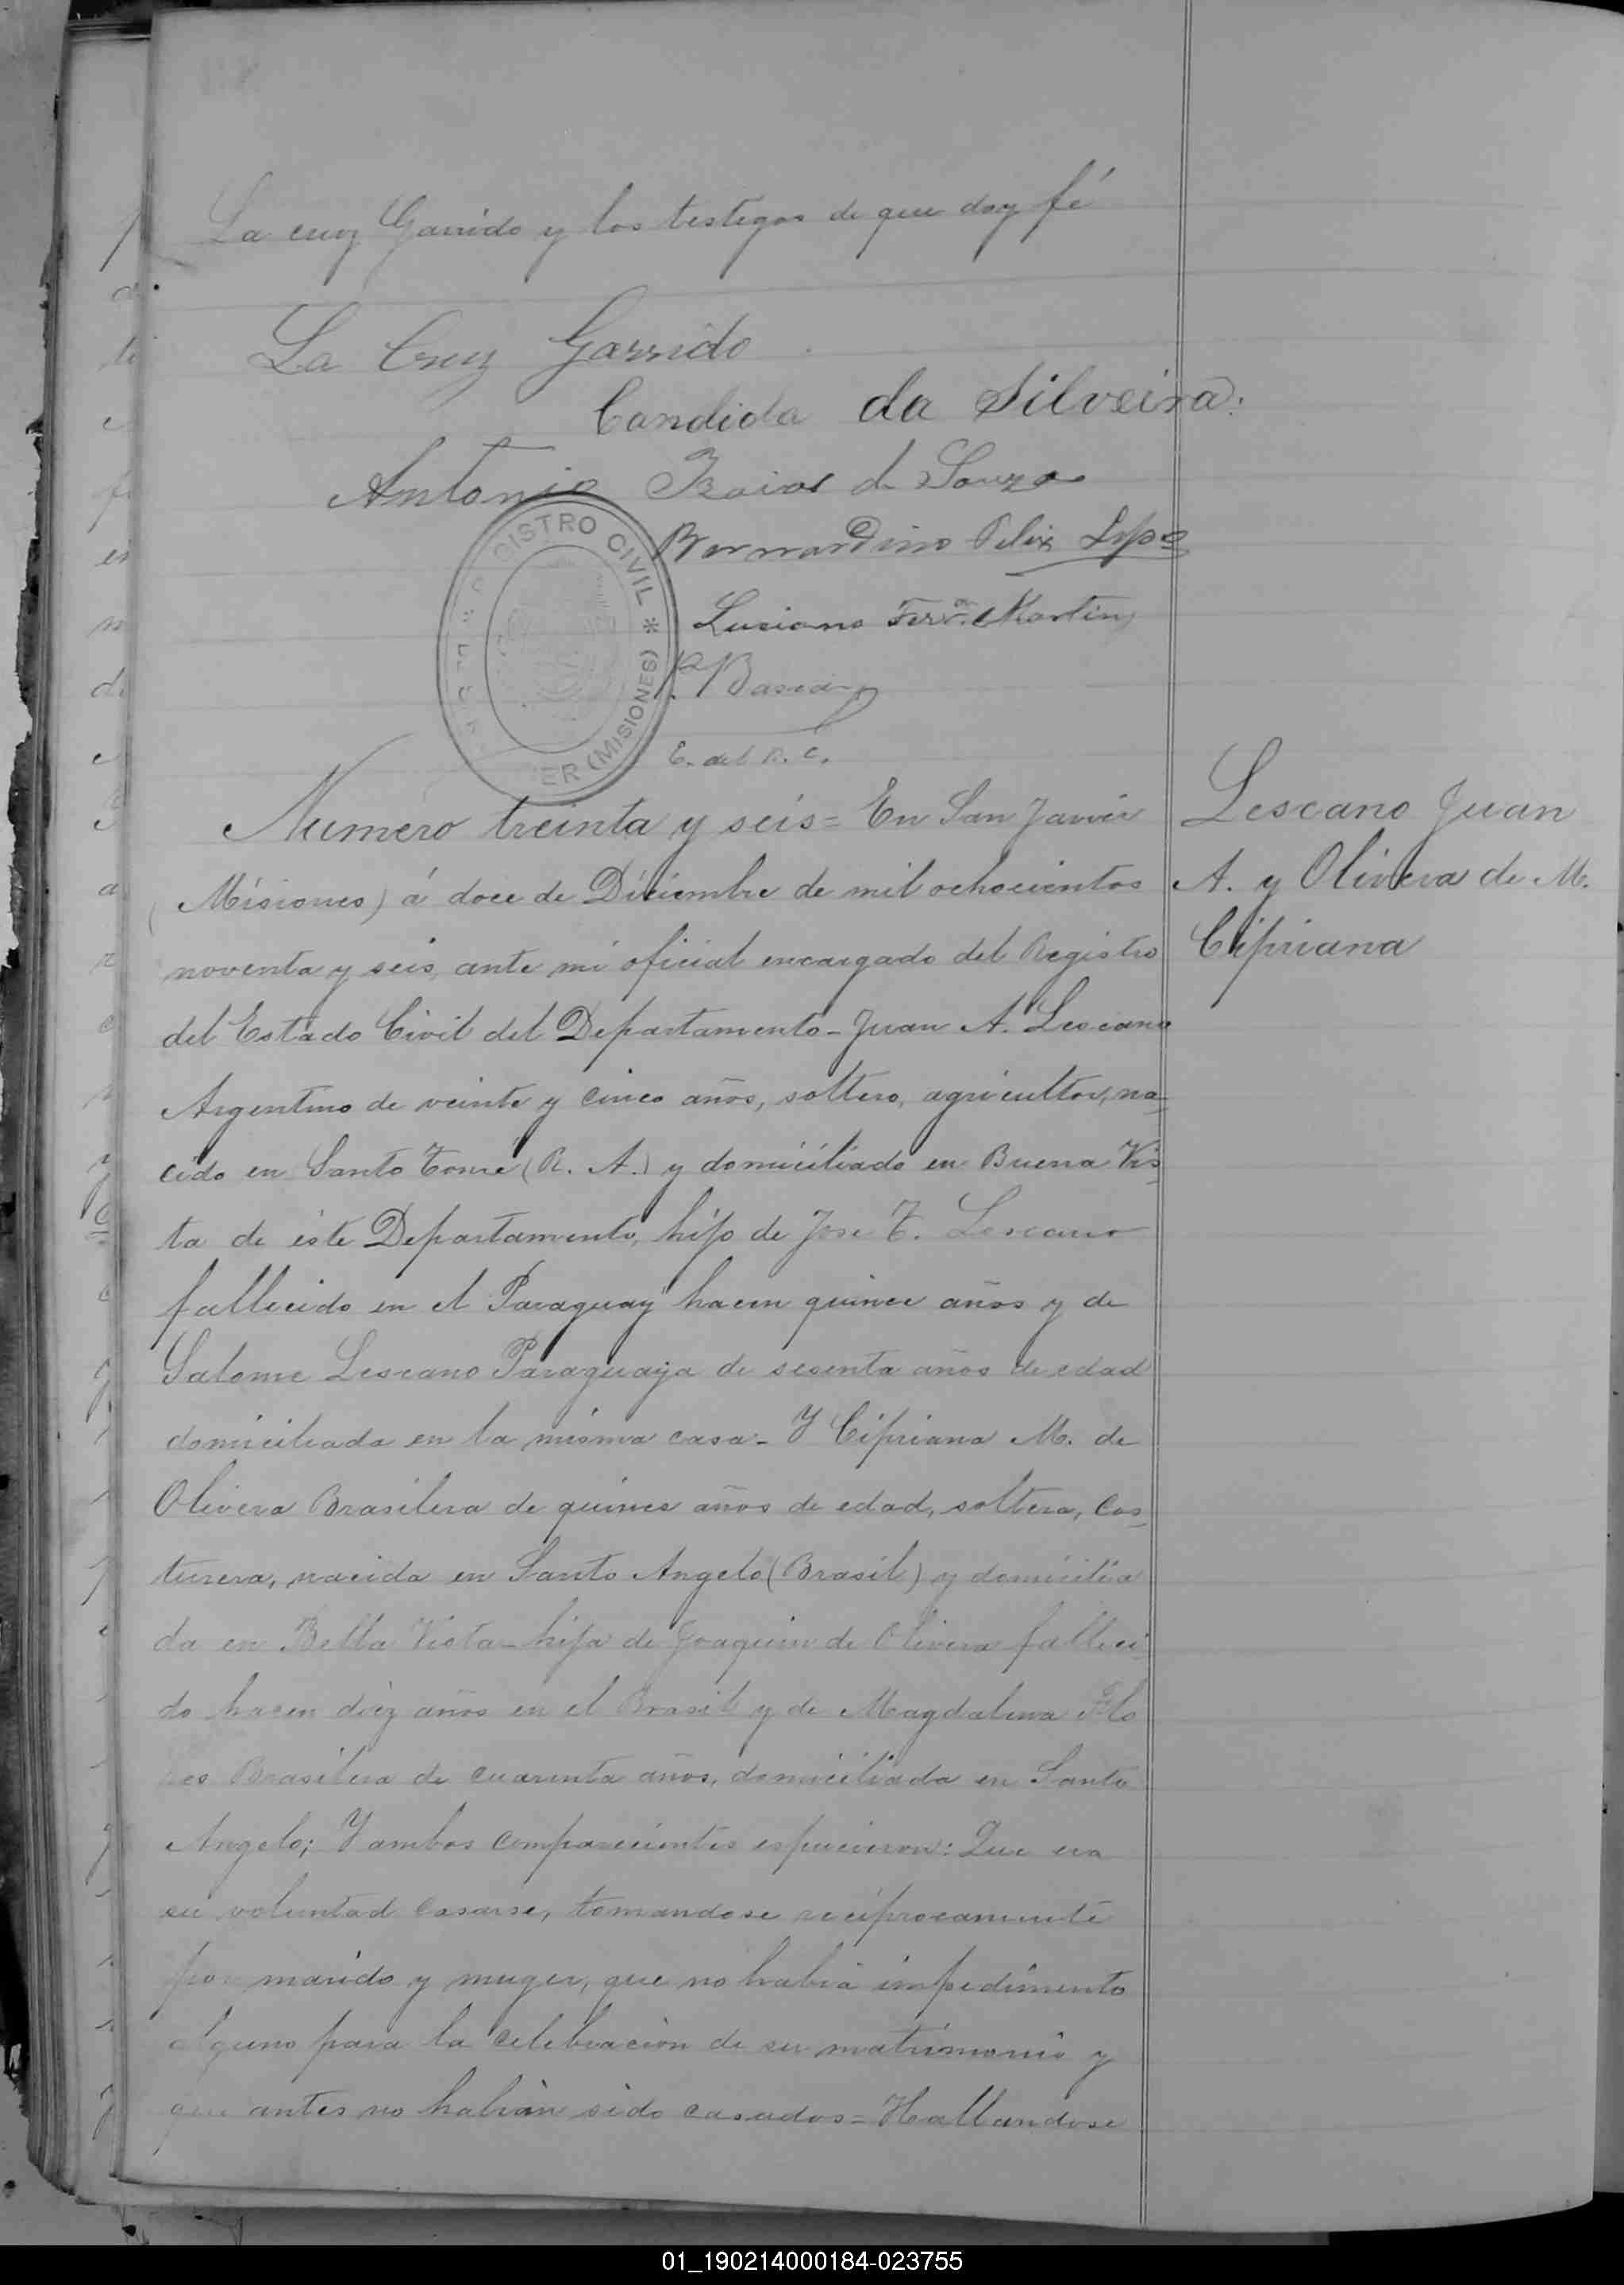 La cruz Garrido y los testigos de que doy fé
La Cruz Garrido
Candida da Silveira.
Antonio de Souza
Bernardino Felix
Luciano Ferr.ª Martins
E. del R. C.
GISTRO CIVIL * ER (MISIONES) *
Numero treinta y seis = En San Javier
(Misiones) á doce de Diciembre de mil ochocientos
noventa y seis, ante mi oficial encargado del Registro
del Estado Civil del Departamento - Juan A. Lescano
Argentino de veinte y cinco años, soltero, agricultor, na-
cido en Santo Tomé (R. A.) y domiciliado en Buena Vis-
ta de este Departamento, hijo de Jose T. Lescano
fallecido en el Paraguay hacen quince años y de
Salome Lescano Paraguaya de sesenta años de edad
domiciliada en la misma casa - Y Cipriana M. de
Olivera Brasilera de quince años de edad, soltera, Cos-
turera, nacida en Santo Angelo (Brasil) y domicilia
da en Bella Vista - hija de Joaquin de Olivera falleci-
do hacen diez años en el Brasil y de Magdalena Flo
res Brasilera de cuarenta años, domiciliada en Santo
Angelo; Y ambos comparecientes espucieron: Que era
su voluntad casarse, tomandose reciprocamente
por marido y muger, que no habia impedimento
alguno para la celebracion de su matrimonio y
que antes no habian sido casados = Hallandose
Lescano Juan
A. y Olivera de M.
Cipriana
01_190214000184-023755